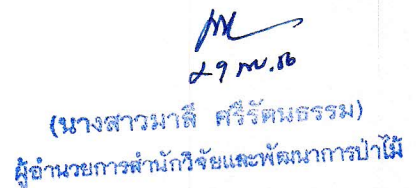 29 พย. 56
(นางสาวมาลี ศรีรัตนธรรม)
ผู้อำนวยการสำนักวิจัยและพัฒนาการป่าไม้